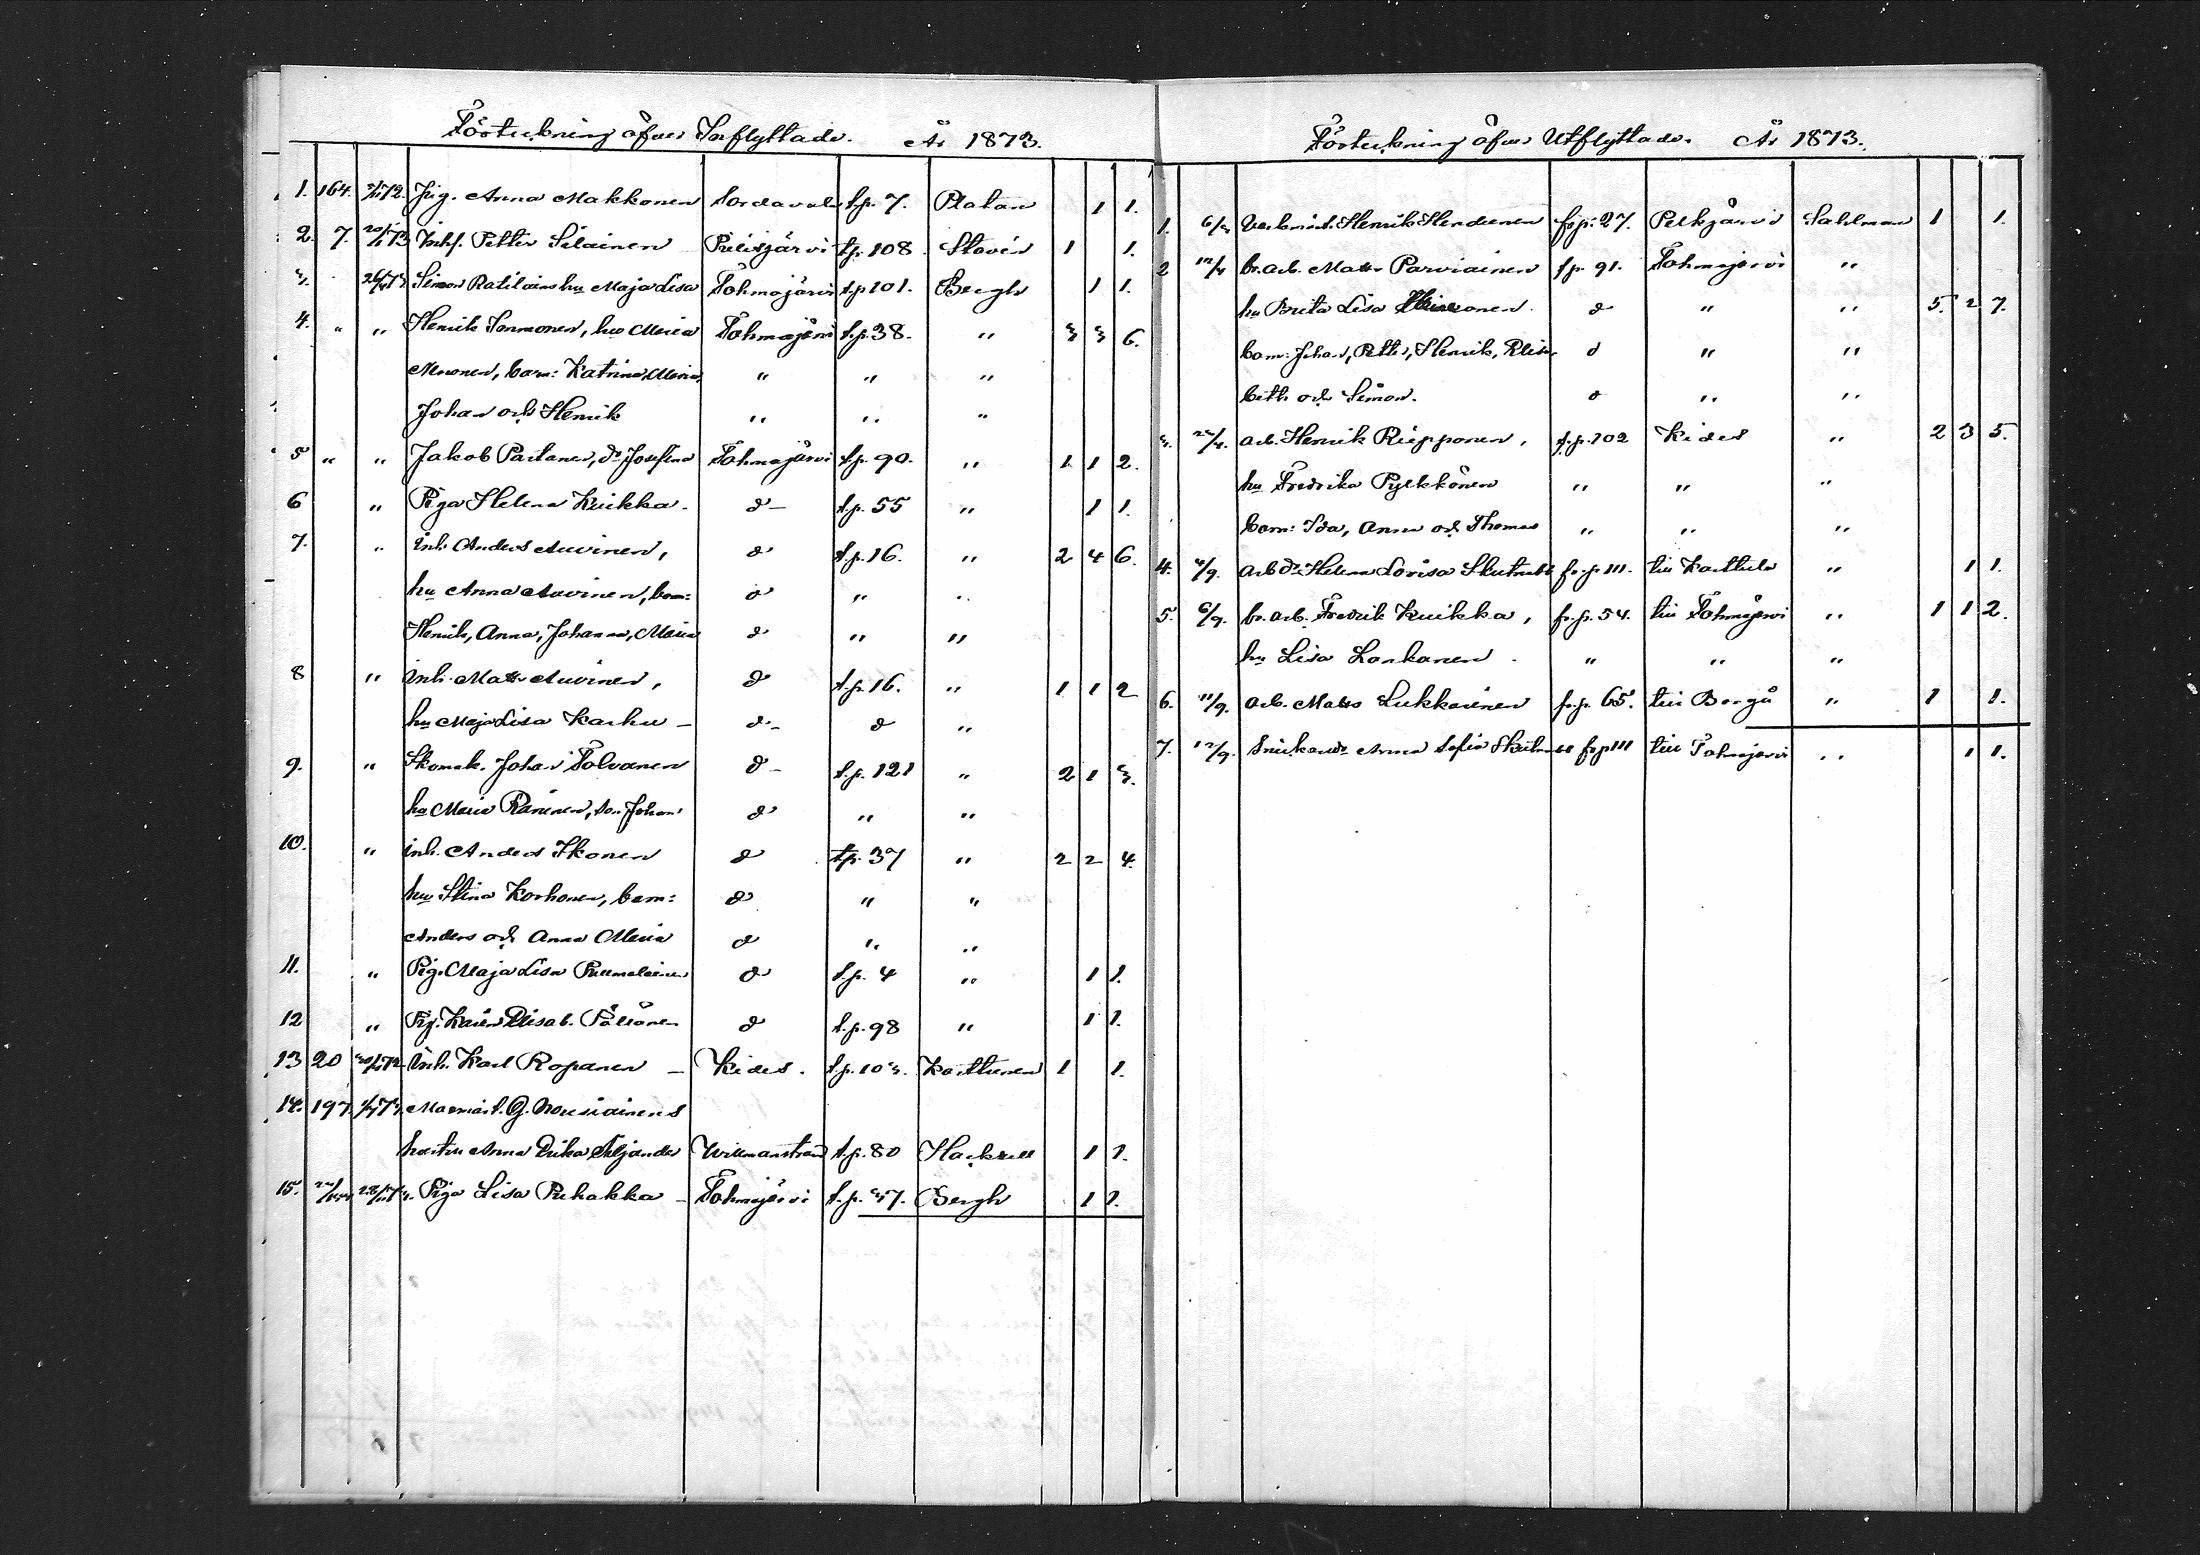 Förteckning öfver Inflyttade. År 1873.
1. 164. Pig. Anna Makkonen Sordavala t.p. 7. Platan 1 1.
2. 7. 20/1 73 Inhs. Petter Silainen Pielisjärvi t.p. 108 Stovén 1 1.
3. Simon Ratilains hu Maja Lisa Tohmajärvi t.p. 101. Bergh 1 1.
4. " " Henrik Ionnonen, hu Maria Tohmajärvi t.p. 38. " 3 3 6.
barn: Katrina, Maria, " " "
Johan och Henrik " " "
5 " " Jakob Partanen, dr Josefina Tohmajärvi t.p. 90. " 1 1 2.
6 " Piga Helena Kuikka. d- t.p. 55 " 1 1.
7. " inh. Anders Auvinen, d t.p. 16. " 2 4 6.
hu Anna Auvinen, barn: d " "
Henrik, Anna, Johanna, Maria d " "
8 " inh. Matts Auvinen, d t.p. 16. " 1 1 2
hu Maja Lisa Karhu - d- d "
9. " Skomak. Johan Tolvanen d- t.p. 121 " 2 1 3.
hu Maria Räninen, son Johan d " "
10. " inh. Anders Ikonen d t.p. 37 " 2 2 4.
hu Stina Korhonen, barn: d " "
Anders och Anna Maria d " "
11. " Pig. Maja Lisa d t.p. 4 " 1 1.
12 " Pig. Karin Elisab. Pöllönen d t.p. 98 " 1 1.
13 20 inh. Karl Ropanen - Kides. t.p. 103. Karttunen 1 1.
14. 197 G. Nousiainens
hustru Anna Erika Willmanstrand t.p. 80 Hackzell 1 1.
15. Piga Lisa Puhakka - Tohmajärvi t.p. 37. Bergh 1 1.
Förteckning öfver Utflyttade. År 1873.
1. 6/3 Henrik Hendunen fr.p. 27. Pelkjärvi Sahlman 1 1.
2 12/4 br. arb. Matts Parviainen f.p. 91. Tohmajärvi "
hu Brita Lisa d " " 5. 2 7.
barn: Johan, Petter, Henrik, Elisa- d " "
beth och Simon. d " "
3. arb. Henrik Riepponen, f.p. 102 Kides " 2 3 5.
hu Fredrika Pylkkönen " " "
barn: Ida, Anna och Thomas " " "
4. 4/9. arb dr Helena Lovisa Skutnabb fr.p. 111. till Karttula " 1 1.
5. 6/9. br. arb. Fredrik Kuikka, fr.p. 54. till Tohmajärvi " 1 1 2.
hu Lisa Lonkanen. " " "
6. 11/9. arb. Matts Lukkarinen fr.p. 65. till Borgå " 1 1.
7. 12/9. Anna Sofia Skutnabb fr.p. 111 till Tohmajärvi " 1 1.